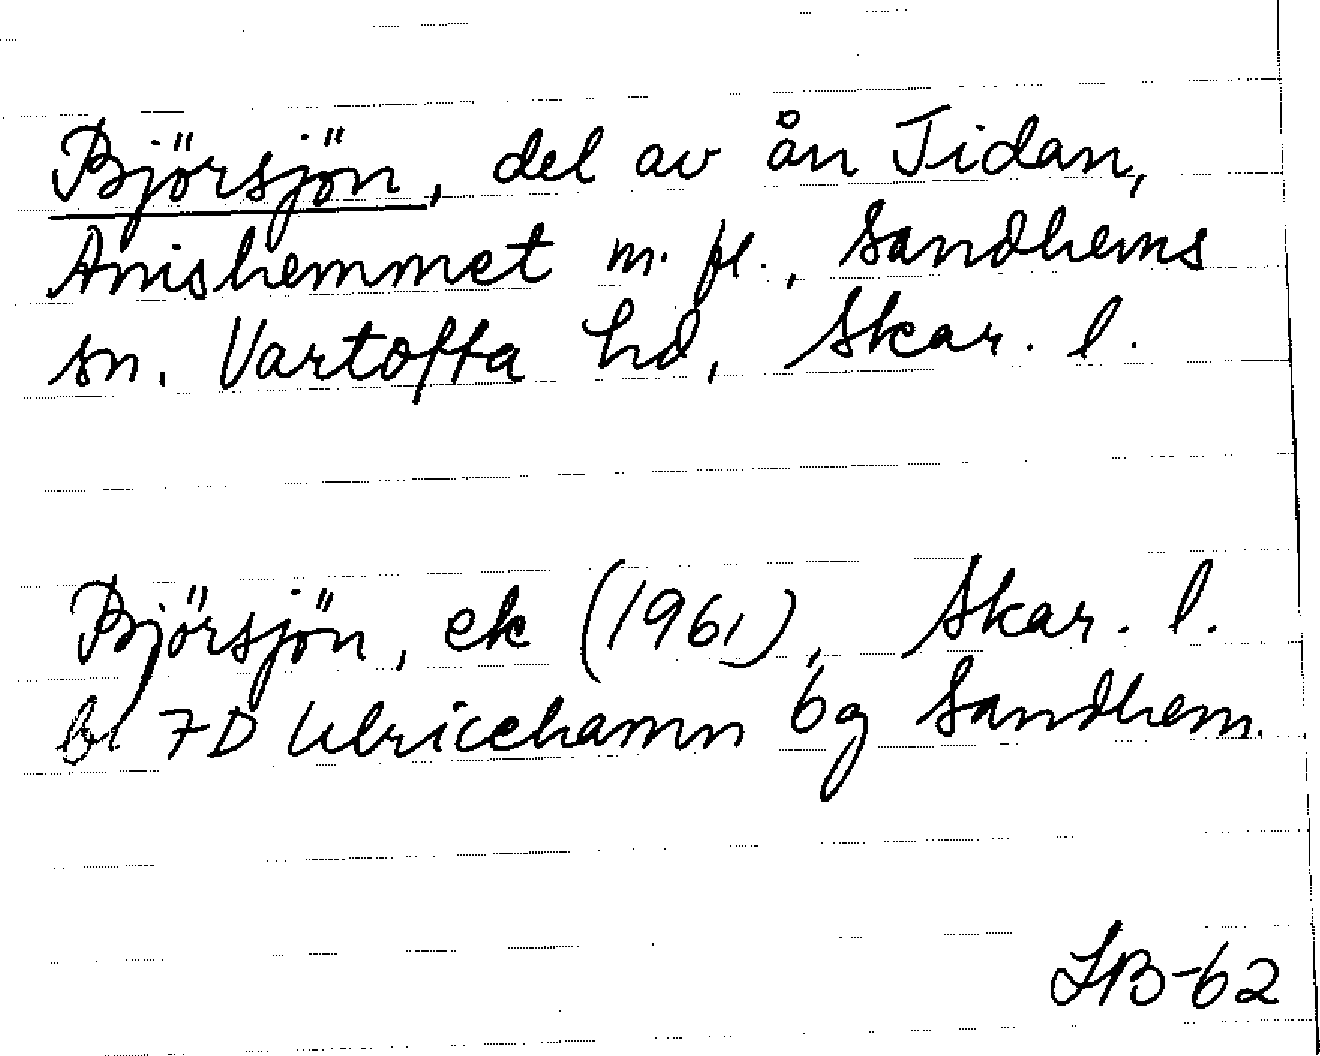 Björsjön, del av ån Tidan,
Anishemmet m. fl., Sandhems
sn. Vartofta hd, Skar. l.
Björsjön, ek (1961), Skar. l.
bl 7D Ulricehamn 6g Sandhem.
LB-62